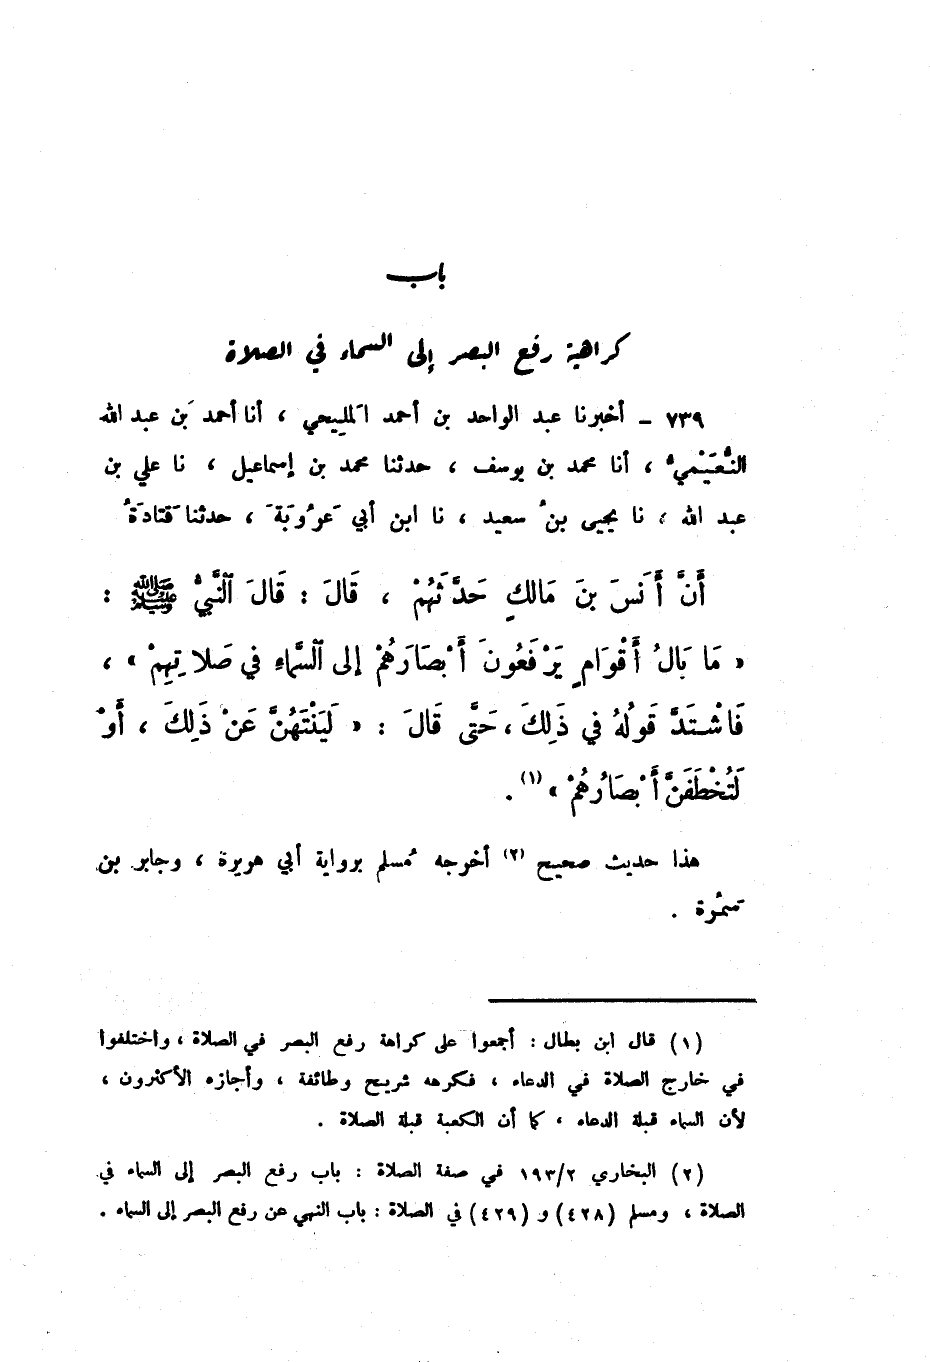 باب
كراهية رفع البصر إلى السماء في الصلاة
٧٣٩ – أخبرنا عبد الواحد بن أحمد المَلِيحي ، أنا أحمد بن عبد الله
النُّعَيْميُّ ، أنا محمد بن يوسف ، حدثنا محمد بن إسماعيل ، نا علي بن
عبد الله ، نا يحيى بنُ سعيد ، نا ابن أبي عَرُوبَةَ ، حدثنا قَتادَةُ
أَنَّ أَنَسَ بنَ مَالكٍ حَدَّثَهُمْ ، قَالَ : قَالَ النَّبيُّ ﷺ :
« مَا بَالُ أَقْوَامٍ يَرْفَعُونَ أَبْصَارَهُمْ إلى السَّماءِ في صَلاتِهِمْ » ،
فَاشْتَدَّ قَولُهُ في ذَلِكَ ، حَتَّى قَالَ : « لَيَنْتَهُنَّ عَنْ ذَلِكَ ، أَوْ
لَتُخْطَفَنَّ أَبْصَارُهُمْ » (١) .
هذا حديث صحيح (٢) أخرجه مُسلم برواية أبي هريرة ، وجابر بن
سَمُرة .
(١) قال ابن بطال : أجمعوا على كراهة رفع البصر في الصلاة ، واختلفوا
في خارج الصلاة في الدعاء ، فكرهه شريح وطائفة ، وأجازه الأكثرون ،
لأن السماء قبلة الدعاء ، كما أن الكعبة قبلة الصلاة .
(٢) البخاري ١٩٣/٢ في صفة الصلاة : باب رفع البصر إلى السماء في
الصلاة ، ومسلم (٤٢٨) و (٤٢٩) في الصلاة : باب النهي عن رفع البصر إلى السماء .